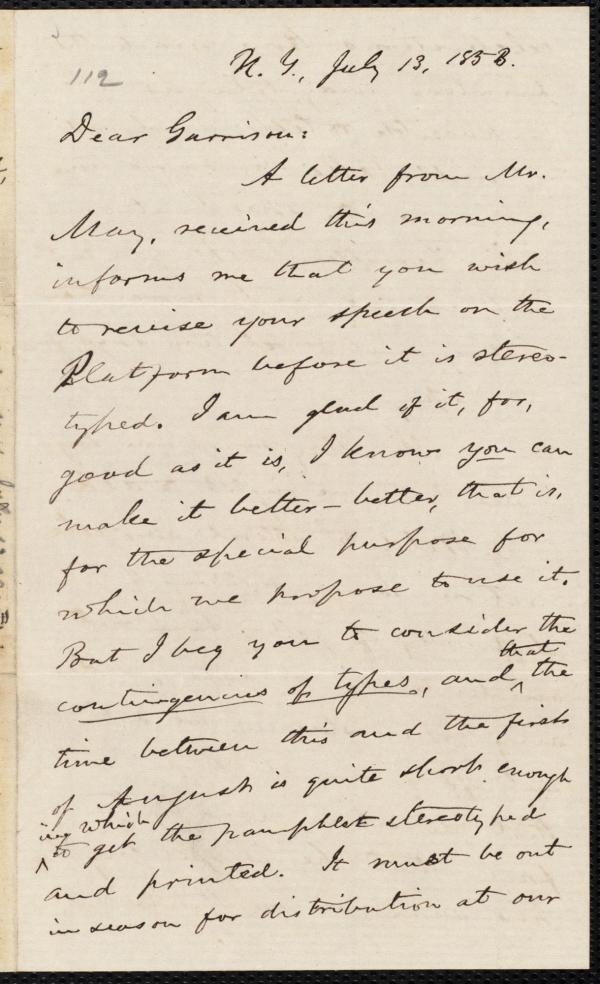 112
N. Y., July 13, 1858.
Dear Garrison:
A letter from Mr.
May, received this morning,
informs me that you wish
to revise your speech on the
Platform before it is stereo-
typed. I am glad of it, for,
good as it is, I know you can
make it better – better, that is,
for the special purpose for
which we propose to use it.
But I beg you to consider the
contingencies of types, and that the
time between this and the first
of August is quite short enough
in which to get the pamphlet stereotyped
and printed. It must be out
in season for distribution at our